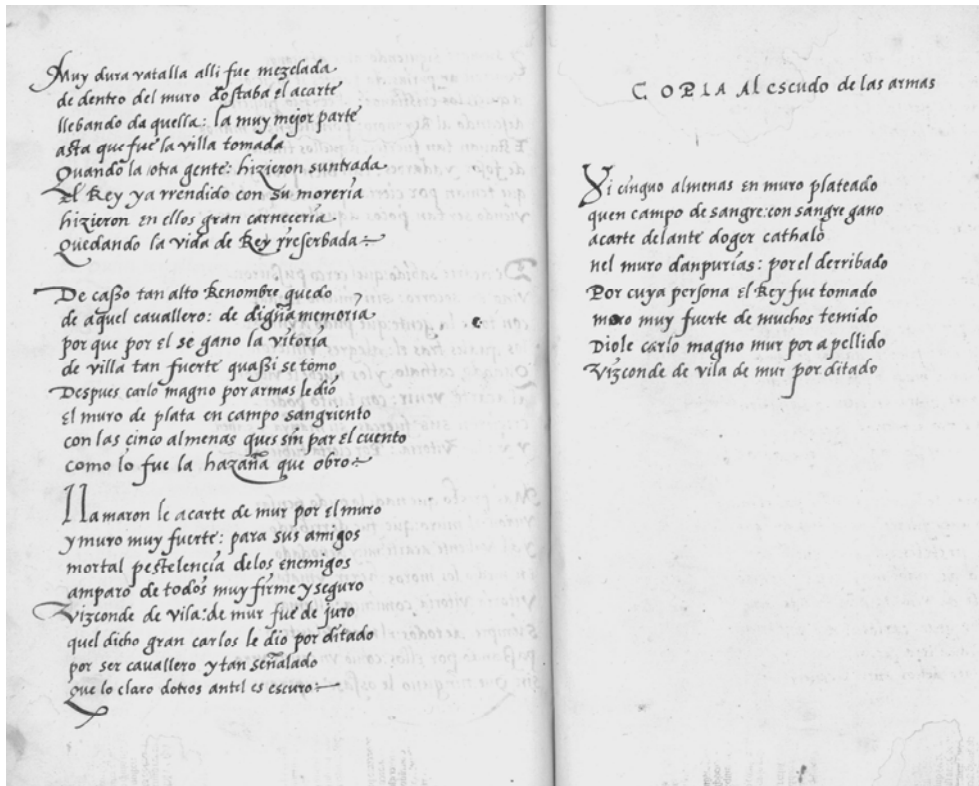 Muy dura vatalla alli fue mezclada
de dentro del muro dostaba el acarte
llebando da quella: la muy mejor parte
asta que fue la villa tomada
Quando la otra gente: hizieron suntrada
El Rey ya rrendido con su moreria
hizieron en ellos gran carneceria
Quedando la vida de Rey rreserbada
De casso tan alto Renombre quedo
de aquel cavallero: de digna memoria
por que por el se gano la vitoria
de villa tan fuerte quassi se tomo
Despues carlo magno por armas le dio
el muro de plata en campo sangriento
con las cinco almenas ques sin par el cuento
como lo fue la hazaña que obro
llamaron le acarte de mur por el muro
y muro muy fuerte: para sus amigos
mortal pestelencia delos enemigos
amparo de todos muy firme y seguro
Vizconde de vila: de mur fue de juro
quel dicho gran carlos le dio por ditado
por ser cavallero y tan señalado
que lo claro dotros antel es escuro
COPIA Al escudo de las armas
Vi cinquo almenas en muro plateado
quen campo de sangre: con sangre gano
acarte delante doger cathalo
nel muro danpurias: por el derribado
Por cuya persona el Rey fue tomado
moro muy fuerte de muchos temido
Diole carlo magno mur por apellido
Vizconde de vila de mur por ditado